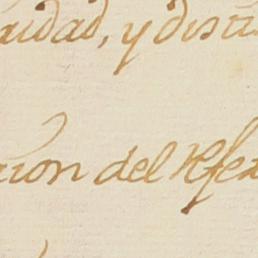 uidad, y distin
cion del Refe